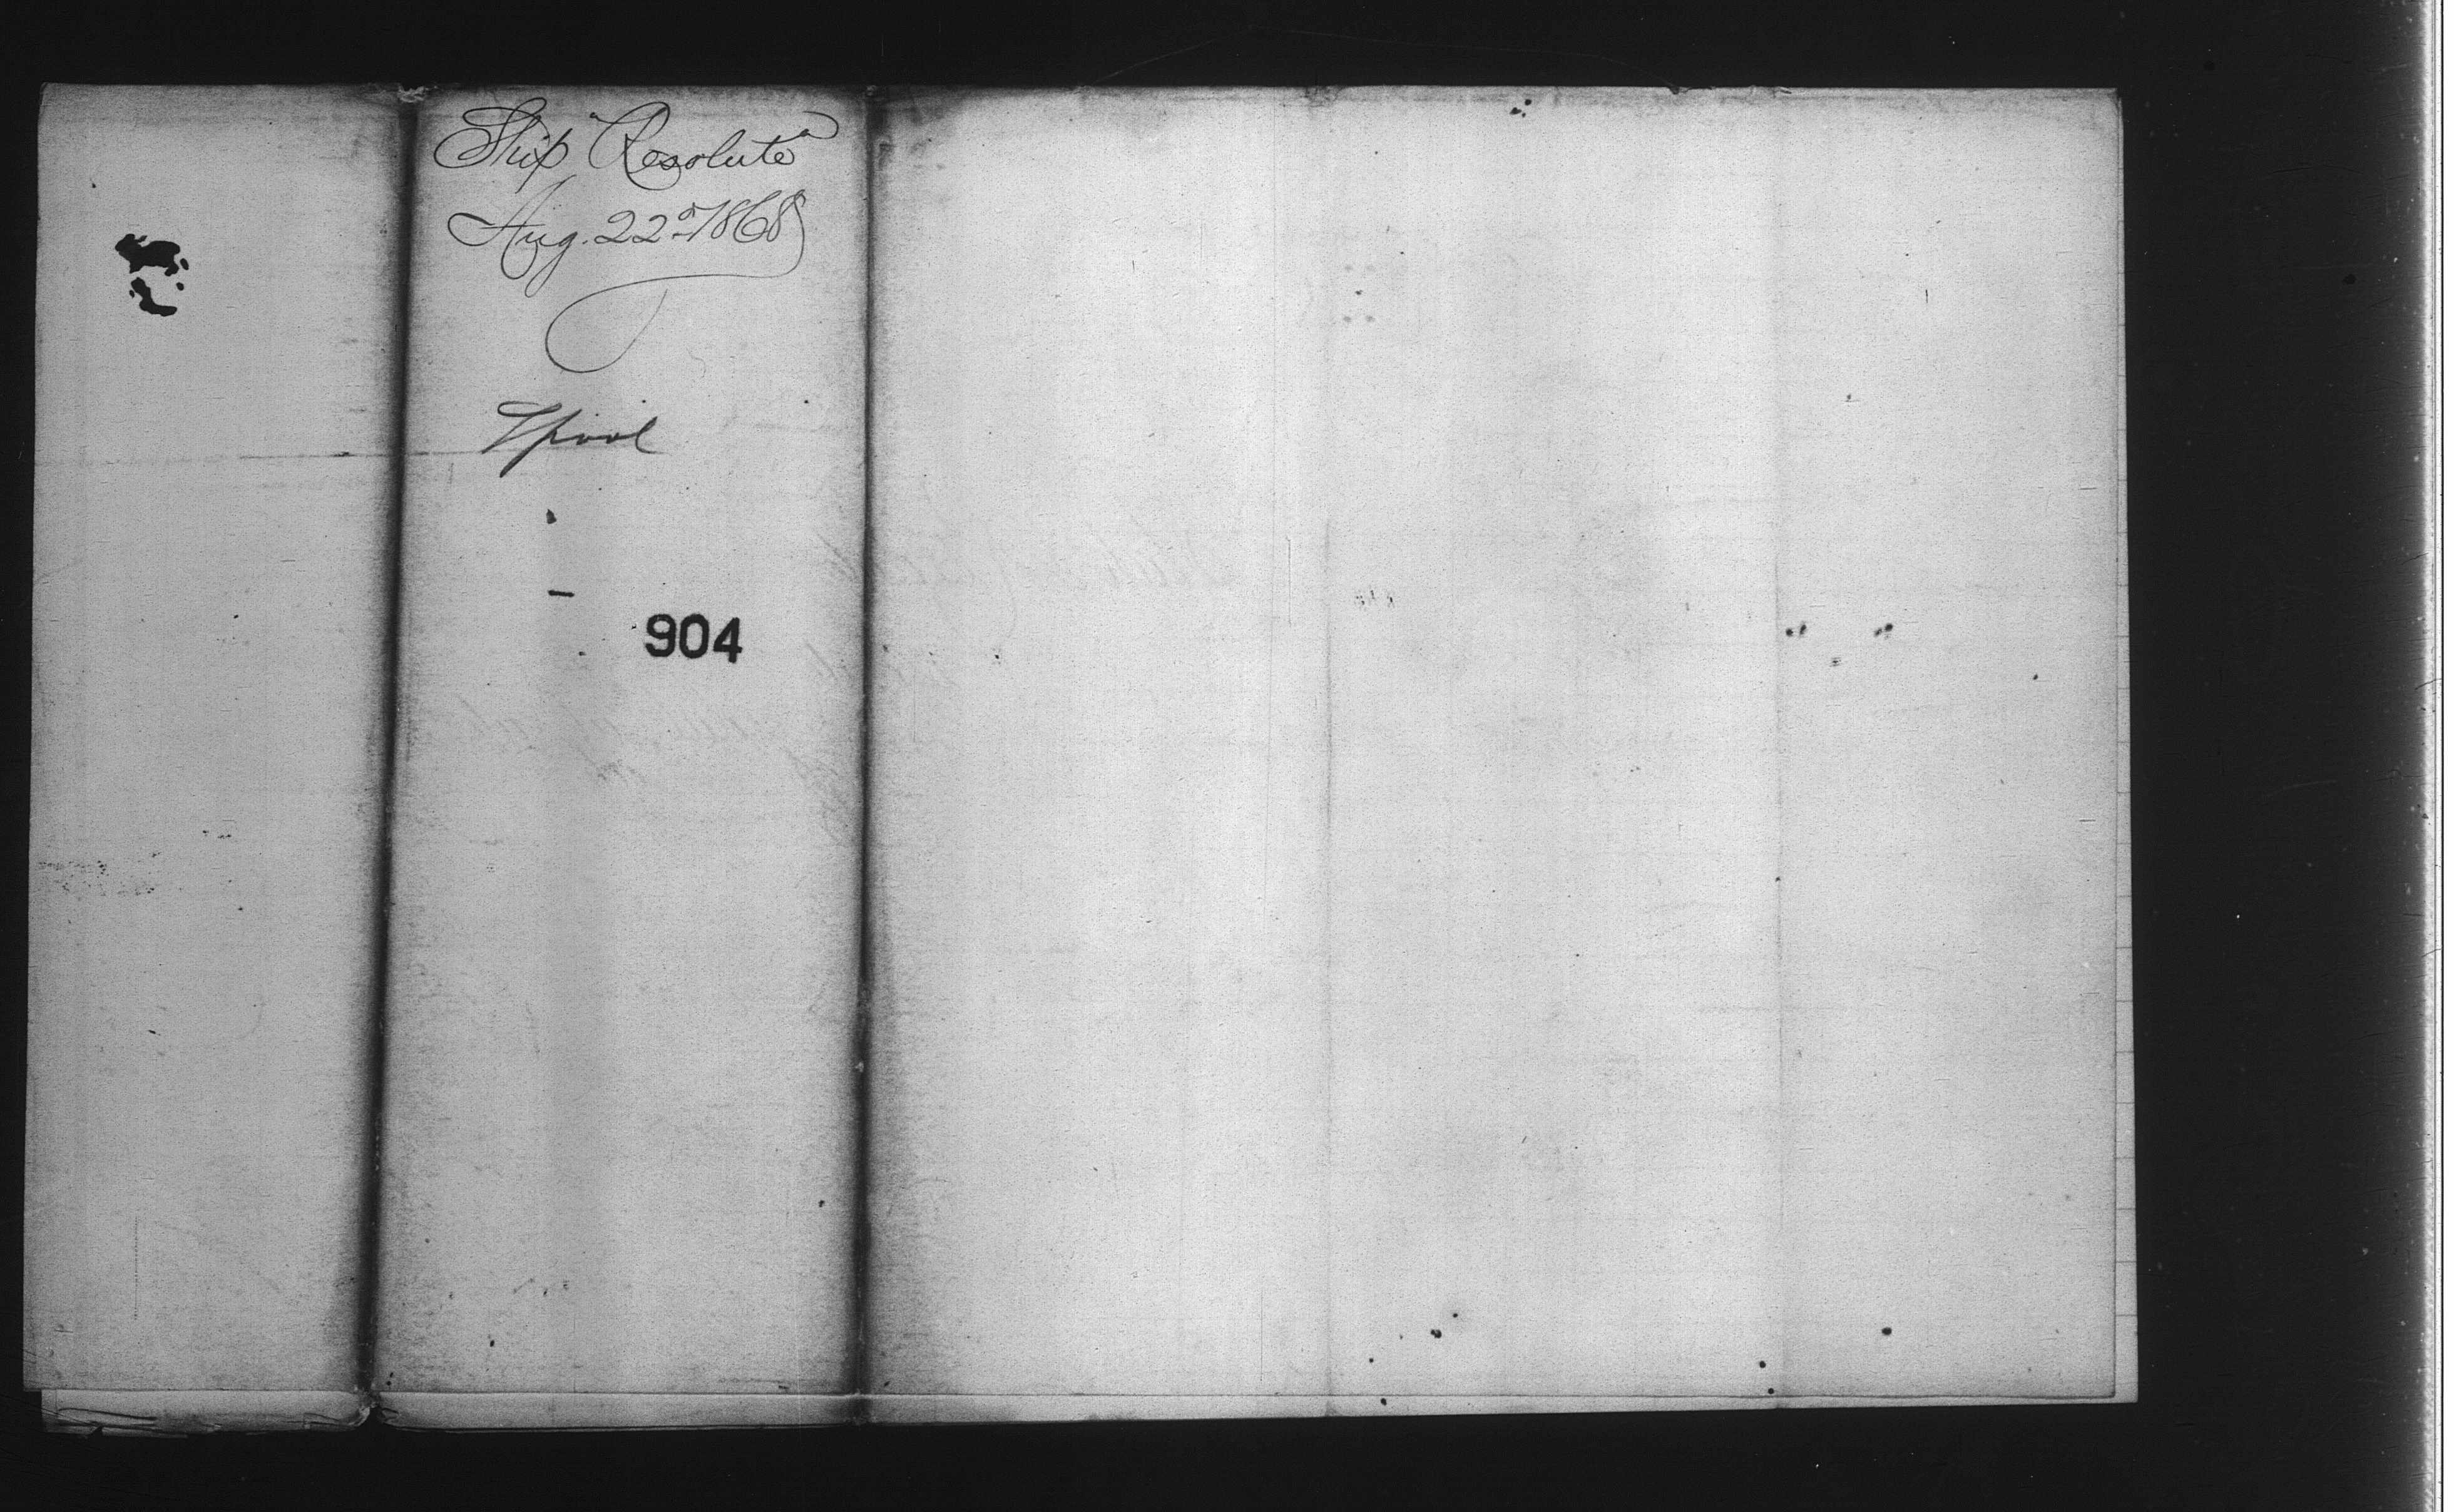 Ship "Resolute"
Aug. 22d 1868
Lpool
904